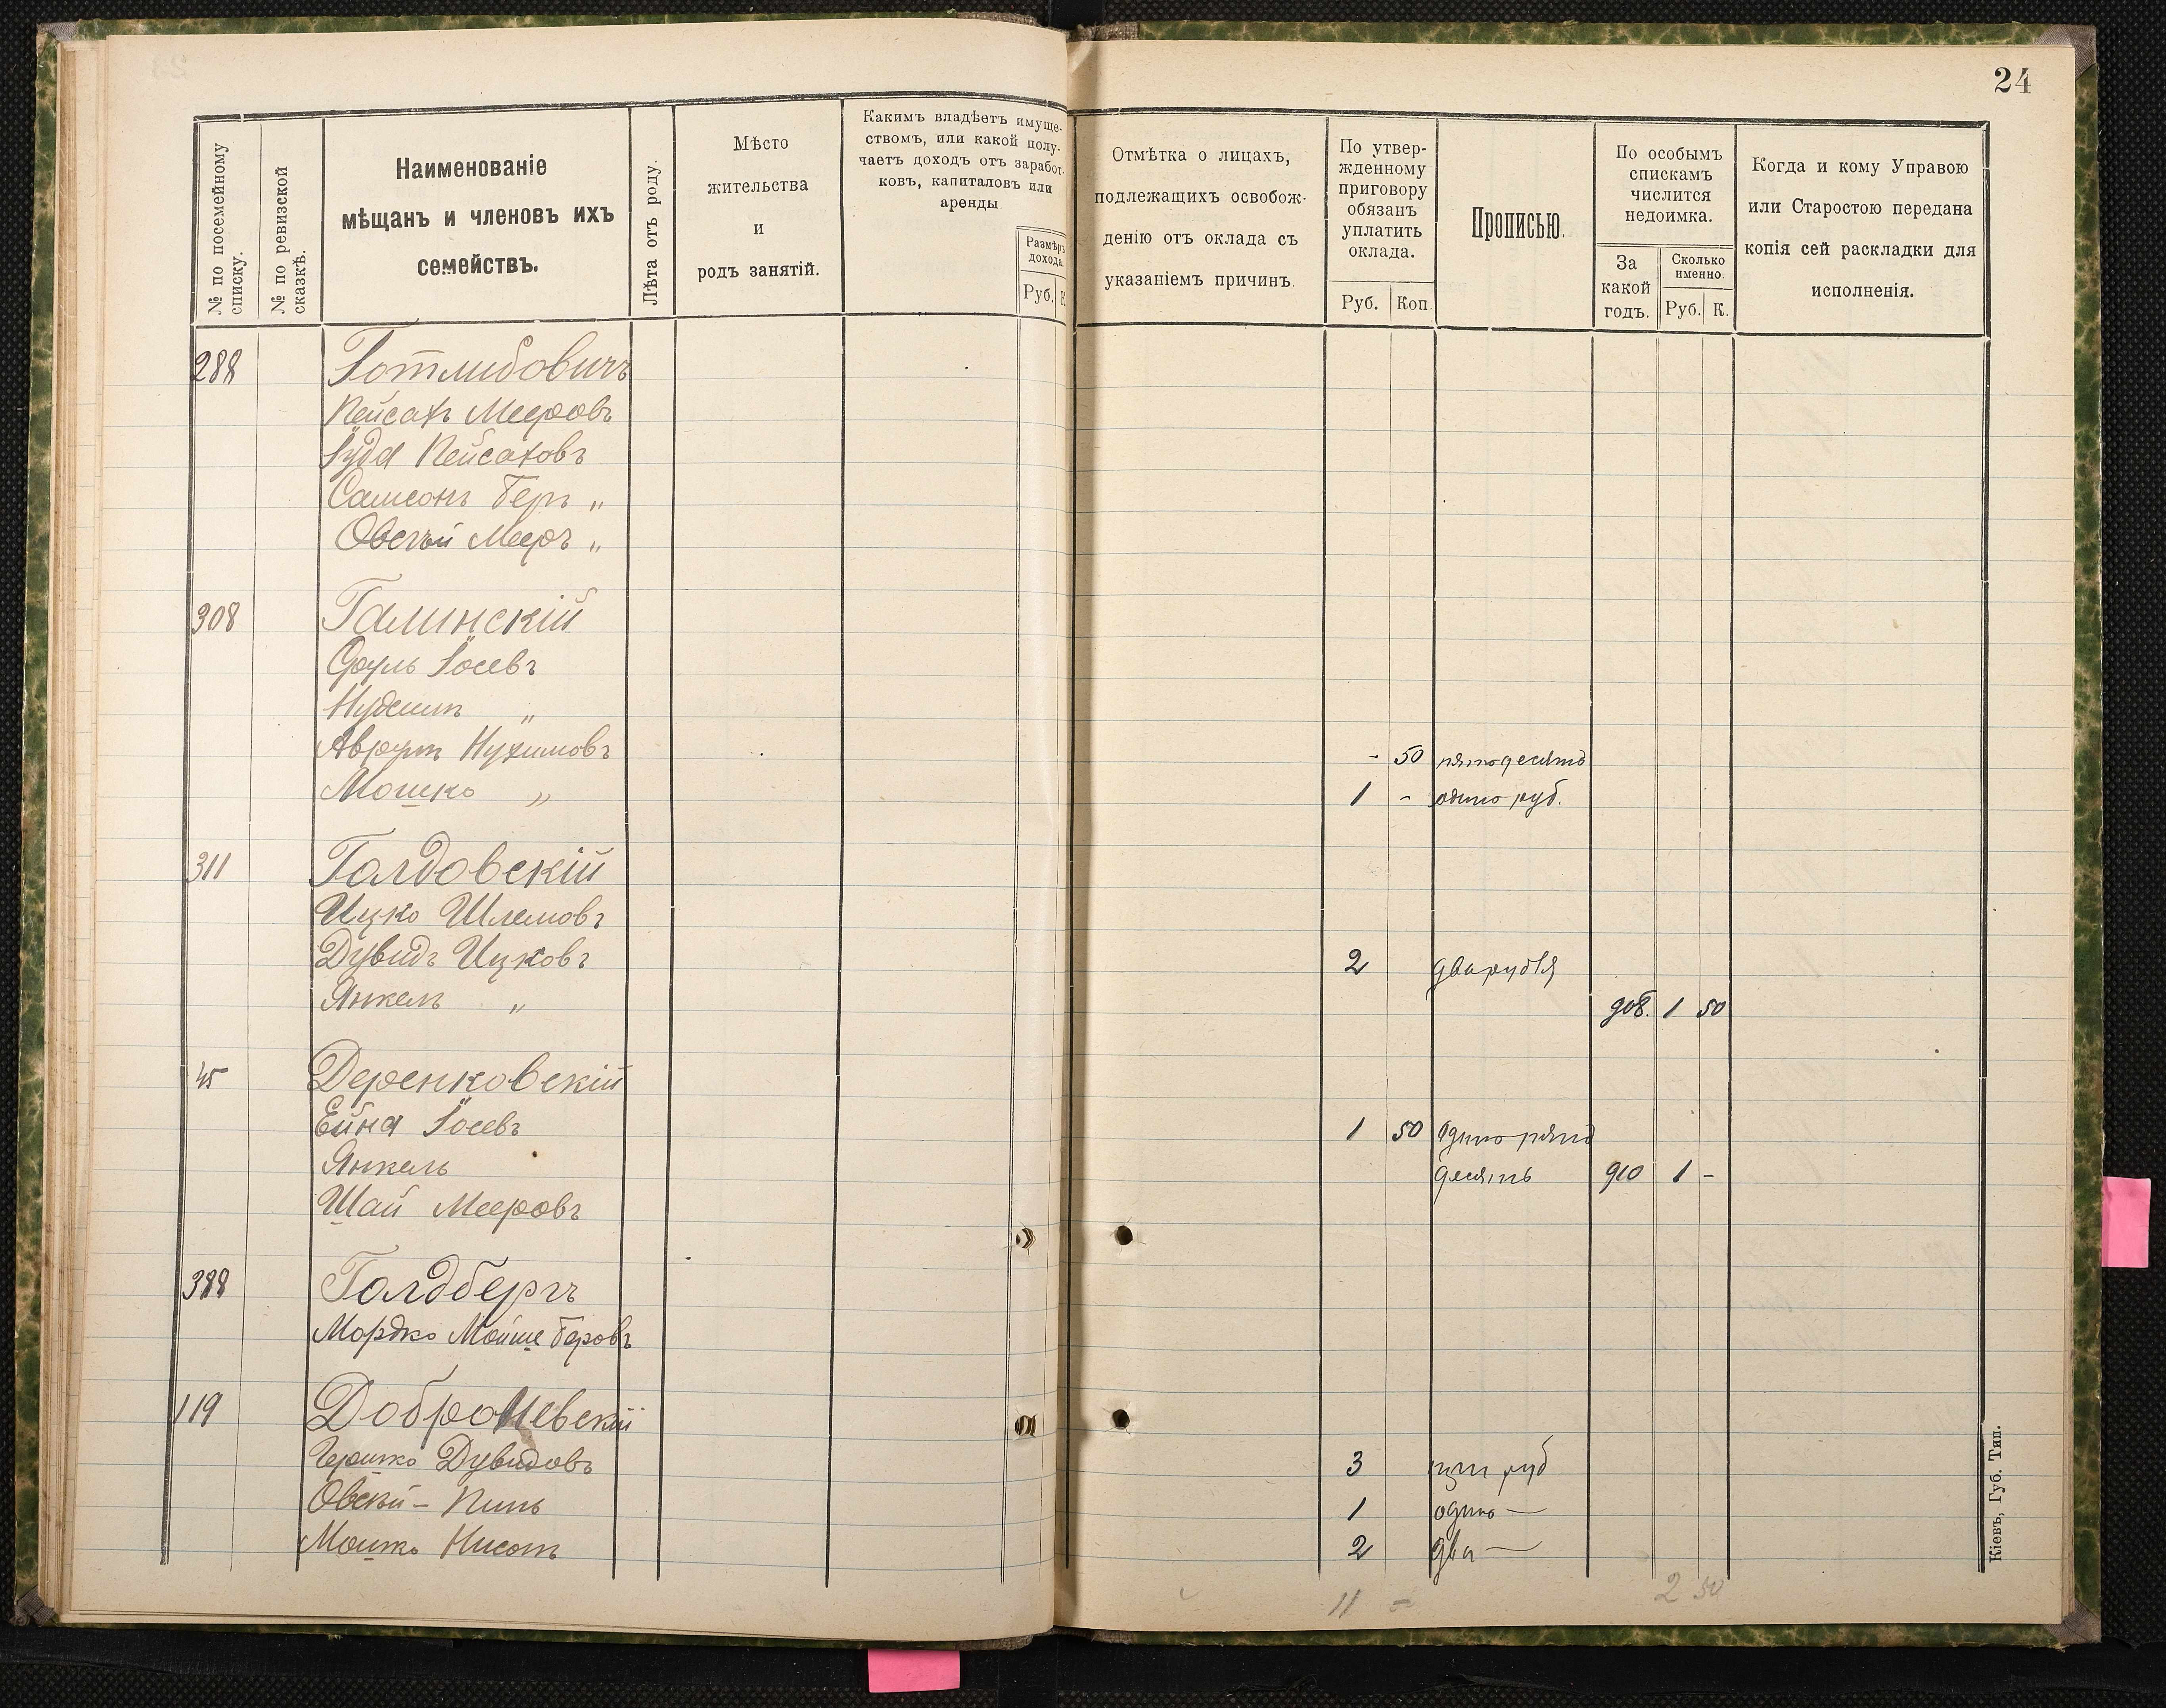 24
№ по посемейному списку.
№ по ревизской сказкѣ.
Наименованіе
мѣщанъ и членовъ ихъ
семействъ.
Лѣта отъ роду.
Мѣсто
жительства
и
родъ занятій.
Какимъ владѣетъ имуще-
ствомъ, или какой полу-
чаетъ доходъ отъ заработ-
ковъ, капиталовъ или
аренды
Размѣръ
дохода.
Руб. К
Отмѣтка о лицахъ,
подлежащихъ освобож-
денію отъ оклада съ
указаніемъ причинъ.
По утвер-
жденному
приговору
обязанъ
уплатить
оклада.
Руб. Коп.
Прописью.
По особымъ
спискамъ
числится
недоимка.
За
какой
годъ.
Сколько
именно.
Руб. К.
Когда и кому Управою
или Старостою передана
копія сей раскладки для
исполненія.
288 Готлибовичъ
Пейсахъ Мееровъ
Іуда Пейсаховъ
Самсонъ Беръ „
Овсѣй Мееръ „
308 Галинскій
Сруль Іосевъ
Нухимъ „
Аврумъ Нухимовъ - 50 пятьдесятъ
Мошко „ 1 - одинъ руб.
311 Голдовскій
Ицко Шлемовъ
Дувидъ Ицковъ 2 два рубля
Янкель „ 908. 1 50
45 Деренковскій
Ейна Іосевъ 1 50 одинъ пять
Янкель десять 910 1 -
Шай Мееровъ
388 Голдбергъ
Мордко Мойше Беровъ
119 Добро евскій
Гершко Дувидовъ 3 три руб
Овсѣй - Пинь 1 одинъ —
Мошко Нисонъ 2 два —
11 - 2 50
Кіевъ, Губ. Тип.